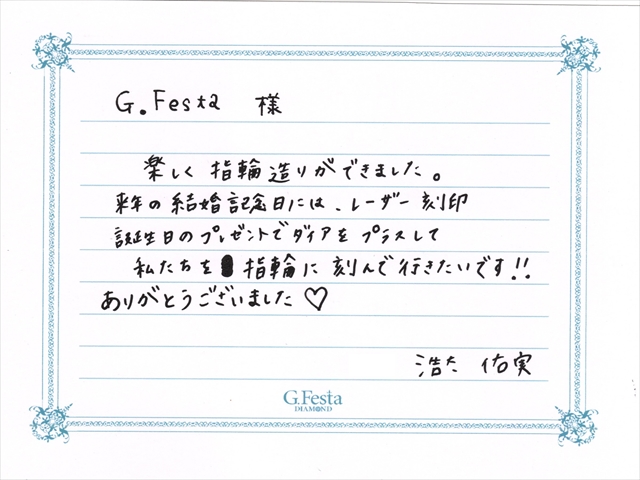 G.Festa 様
楽しく 指輪造りができました。
来年の結婚記念日には、レーザー刻印
誕生日のプレゼントでダイアをプラスして
私たちを 指輪に刻んで行きたいです!!
ありがとうございました♡
浩太 佑実
G.Festa
DIAMOND